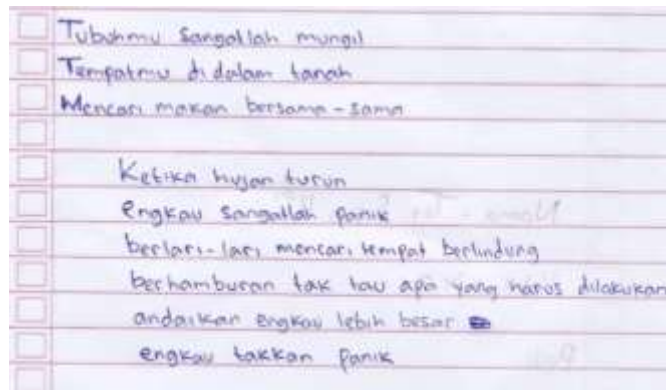 Tubuhmu sangatlah mungil
Tempatmu di dalam tanah
Mencari makan bersama-sama
Ketika hujan turun
engkau sangatlah panik
berlari-lari mencari tempat berlindung
berhamburan tak tau apa yang harus dilakukan
andaikan engkau lebih besar
engkau takkan panik